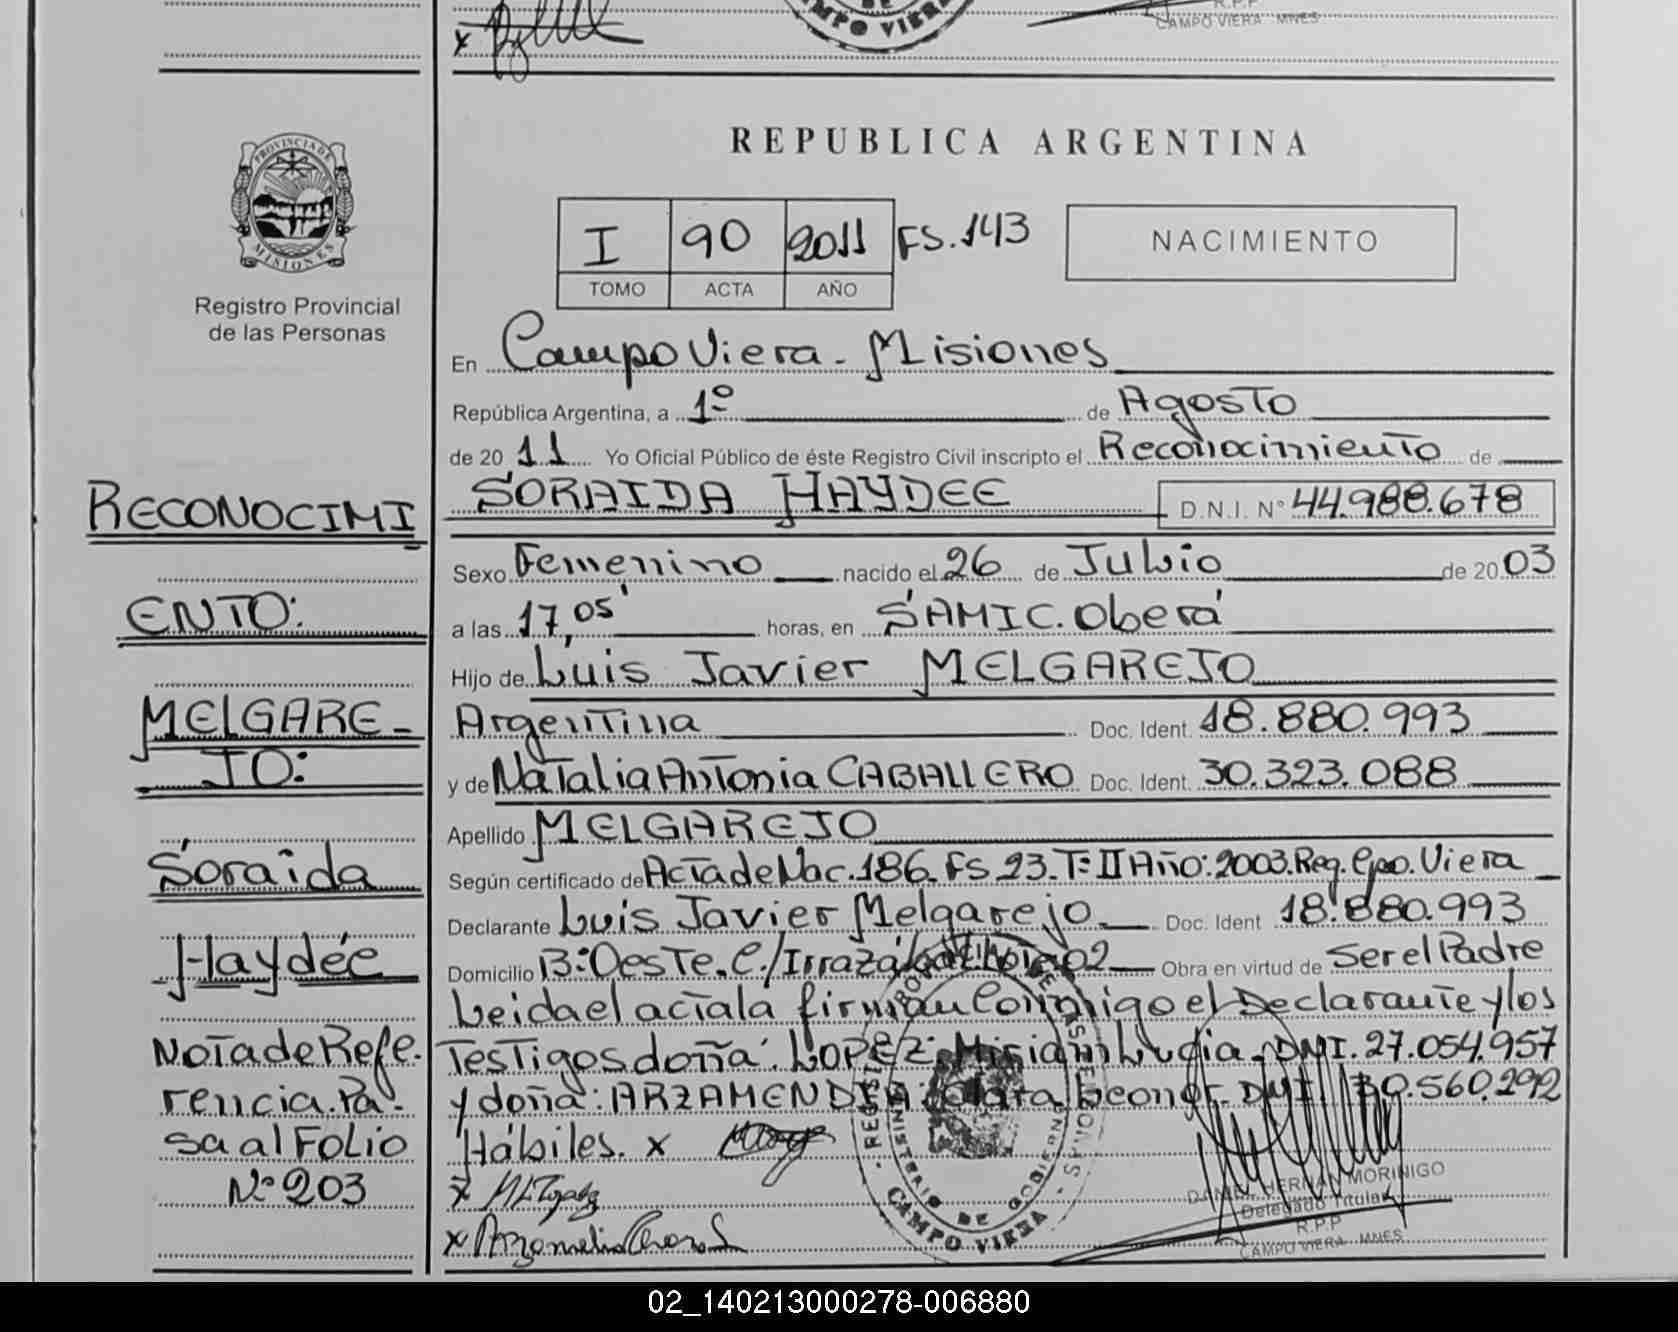 CAMPO VIERA
R.P.P
CAMPO VIERA MNES
x
PROVINCIA DE MISIONES
Registro Provincial
de las Personas
REPUBLICA ARGENTINA
I 90 2011 FS.143
TOMO ACTA AÑO
NACIMIENTO
En Campo Viera - Misiones
República Argentina, a 1º de Agosto
de 20 11 Yo Oficial Público de éste Registro Civil inscripto el Reconocimiento de
SORAIDA HAYDEE D.N.I. N° 44.988.678
Sexo Femenino nacido el 26 de Julio de 20 03
a las 17,05' horas, en SAMIC. Oberá
Hijo de Luis Javier MELGAREJO
Argentina Doc. Ident. 18.880.993
y de Natalia Antonia CABALLERO Doc. Ident. 30.323.088
Apellido MELGAREJO
Según certificado de Acta de Nac. 186. FS. 23. Tº II Año: 2003. Reg. Cpo. Viera
Declarante Luis Javier Melgarejo. Doc. Ident 18.880.993
Domicilio Bº Oeste. C./Irrazábal 02 Obra en virtud de Ser el Padre
Leida el acta la firman Conmigo el Declarante y los
Testigos doña: LOPEZ Miriam Lidia. DNI. 27.054.957
y doña: ARZAMENDIA Clara Leonor. DNI 30.560.292
Hábiles. x
x
x
RECONOCIMI
ENTO:
MELGARE-
JO:
Soraida
Haydée
Nota de Refe.
rencia. Pa-
sa al FOLIO
Nº 203
CAMPO VIERA
DANIEL HERNAN MORINIGO
Delegado Titular
R.P.P
CAMPO VIERA MNES
02_140213000278-006880